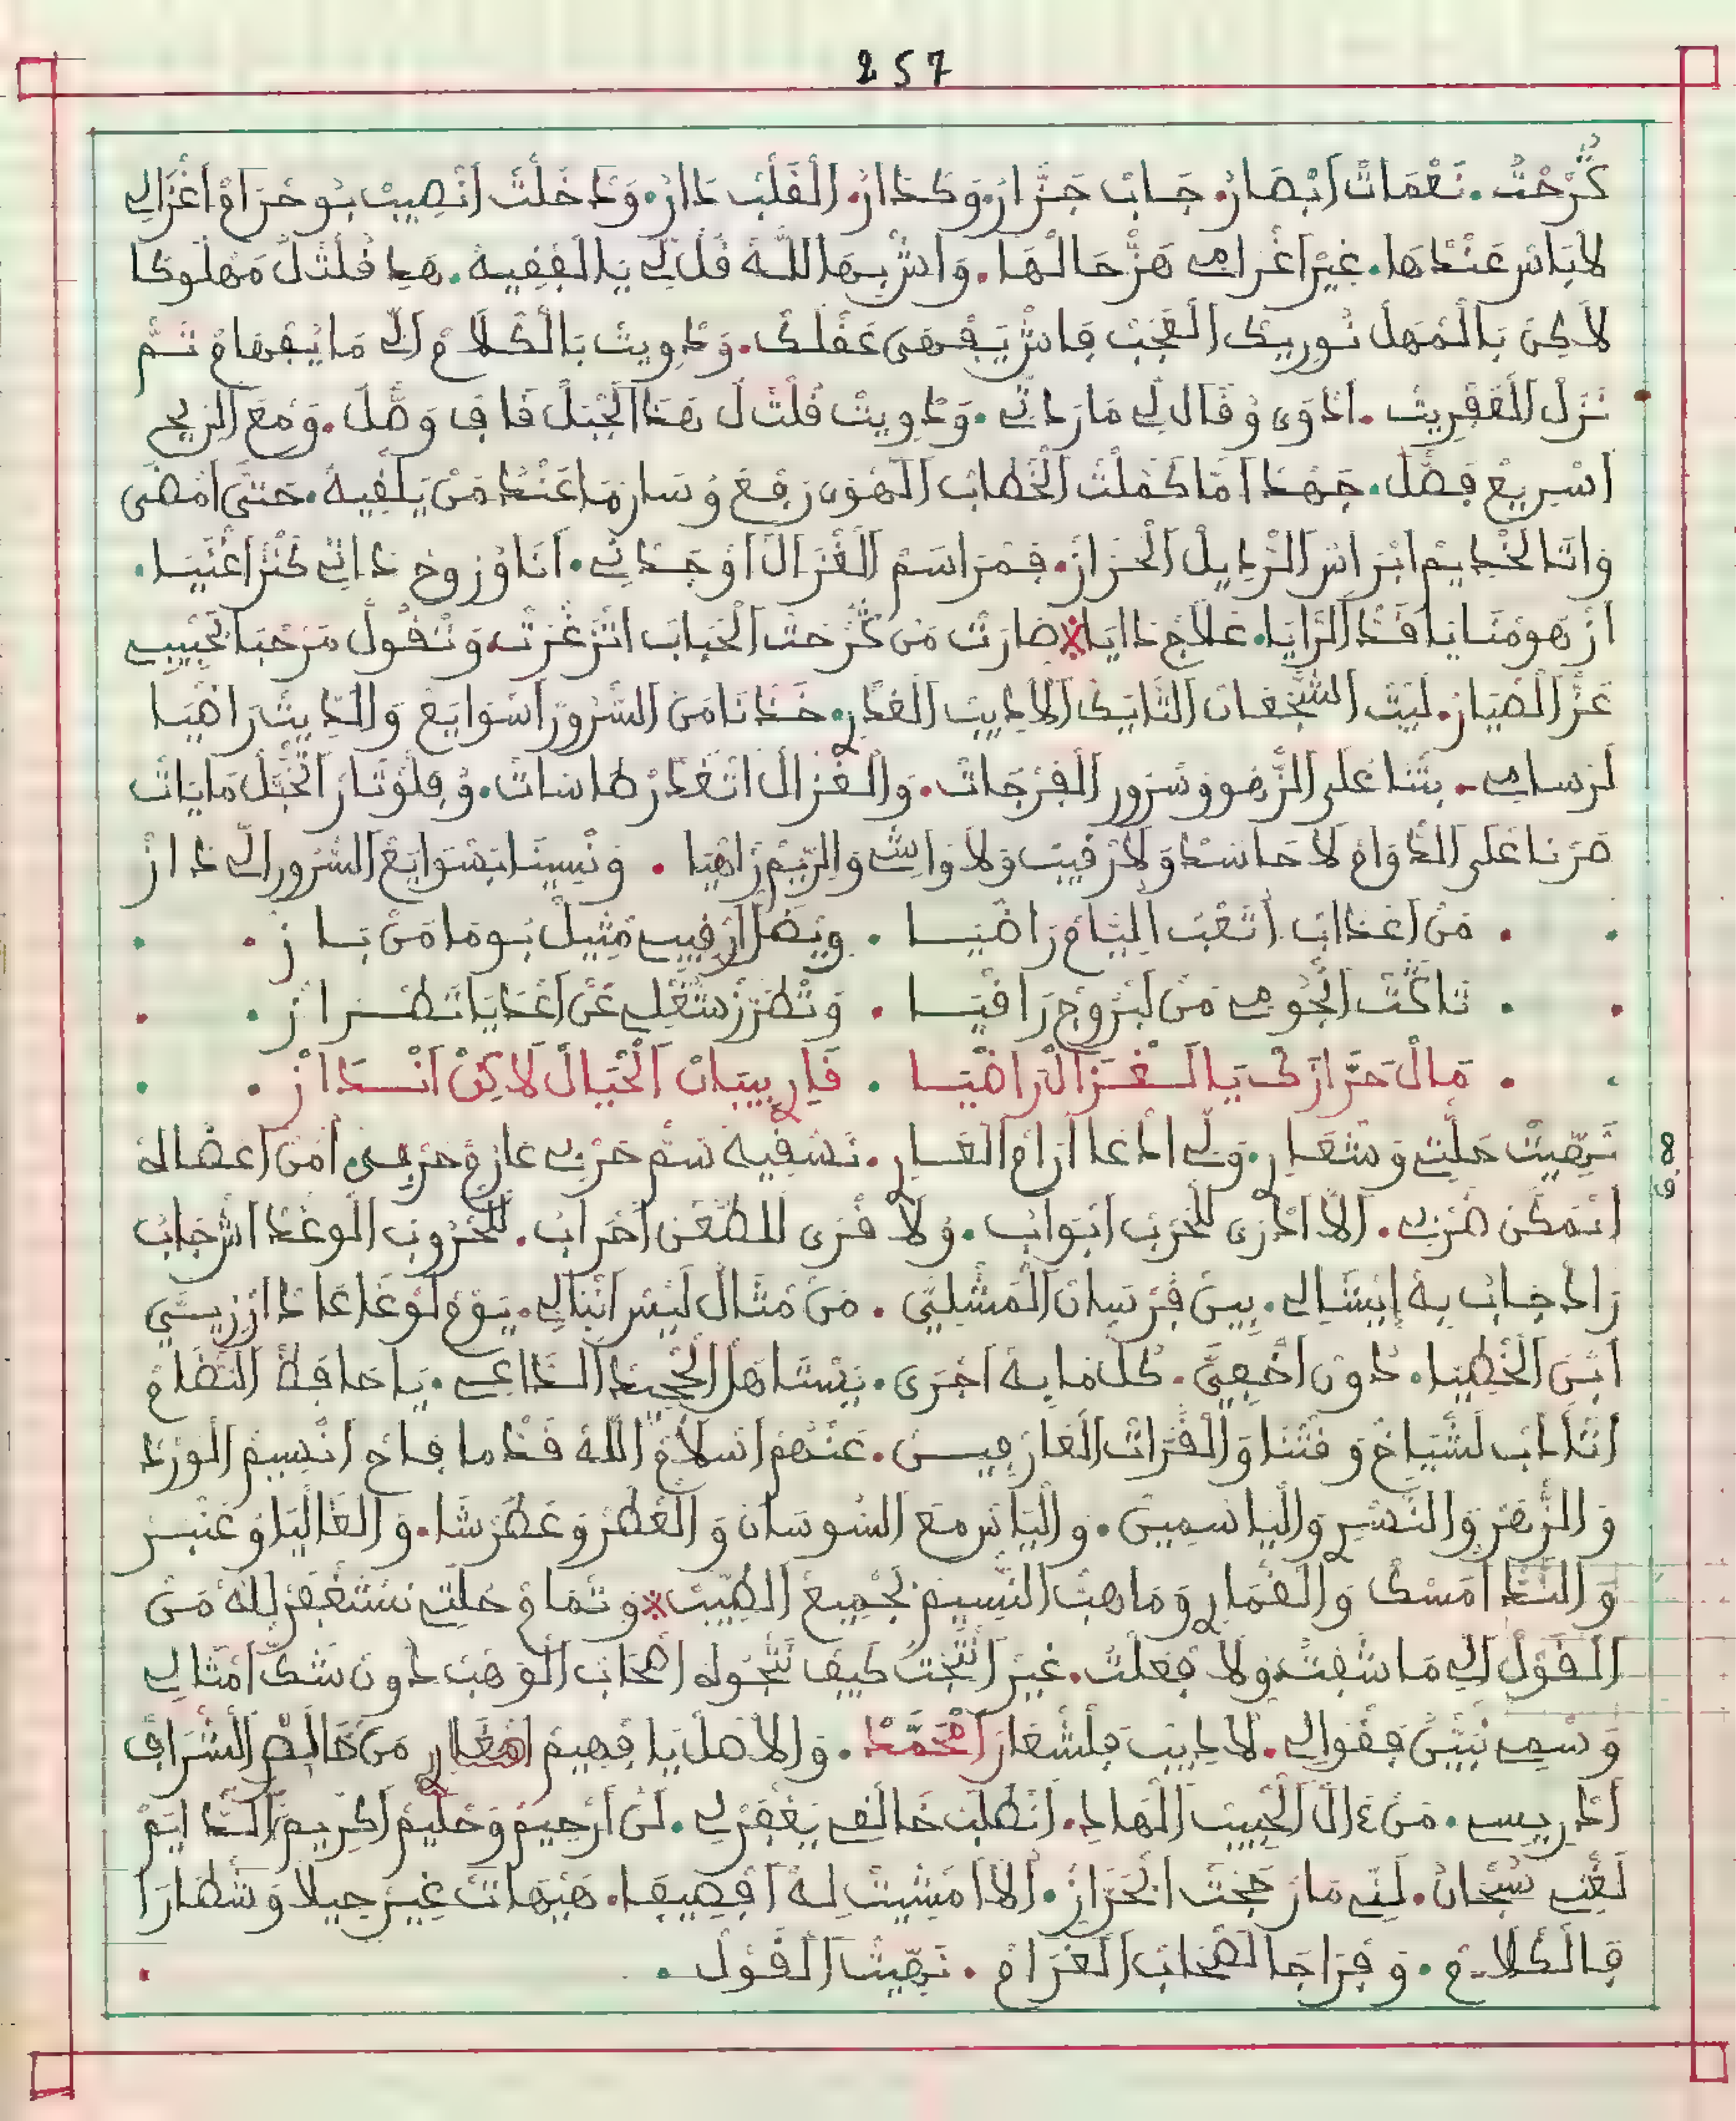 257
كُرْحْتُ. نَعْمَاتْ اَبْصَارُ. جَابْ جَزَّارُ. وَكْدَارْ. الْقَلْبْ دَارْ. وَدْخَلْتْ اَنْصِيبْ بُوحْرَامْ اغْزَالِي
لاَبَاسْ عَنْدْهَا. غِيرْ اغْرَامِي هَزّْ حَالْهَا. وَاشْ بِهَا اللَّهْ قُلْ لِي يَا الْفْقِيهْ. هَدِ قُلْتْ لُ مَمْلُوكَا
لاَكِنْ بَالْمْهَلْ نُورِيكْ الْعْجَبْ فَاشْ يَفْهَى عَقْلَكْ. وَدْوِيتْ بَالْكْلاَمْ الِّي مَا يُفْهَامْ تَمّْ
نْزَلْ الْعَفْرِيتْ. ادْوَى وُقَالْ لِي مَا رَدْنِي. وَدْوِيتْ قُلْتْ لُ هَذَا الْجْبَلْ قَافْ وَصَّلْ. وَمْعَ الرِّيحْ
اسْرِيعْ فِصَّلْ. جَهْدْ امَّا كَمْلَتْ الْخْطَابْ الْهْوَى رْفَعْ وُسَارْ مَا عَنْدُ مَنْ يَلْفِيهْ. حَتَّى امْضَى
وَاتَّا لَخْدِيمْ ابْرَاسْ الرّْدِيلْ الْحَرَّازْ. فِمْرَاسَمْ الْغْزَالْ اوْجَدْنِي. اَنَا وُرُوحْ دَاتِي كَنْزْ اغْنَيَا.
ازْهُو مْنَا يَا فَقْدْ الرَّايَا. عْلاَجْ دَايَا * صَارَتْ مَنْ كُرْحْتْ الْحْبَابْ اتْزَغْرَتْ. وَتْقُولْ مَرْحْبَا بَحْبِيبِي
عَزّْ الصْيَارْ. لَيْتْ الشَّجْعَانْ التَّايَكْ الاَدِيبْ الْغَدَّارِ. خَدْنَا مَنْ السّْرُورْ اسْوَايَعْ وَالدِّيتْ رَاضْيَا
لَرْسَامِي. بَتْنَا عْلَى الزّْهُو وُسْرُورْ الْفْرْجَاتْ. وَالْغْزَالْ اتْغَدَّرْ طَاسَاتْ. وُفِلُوتَارْ اتْخَبَّلْ مَايَاتْ
صَرْنَا عْلَى الدّْوَامْ لاَ حَاسْدْ وَلاَ رْقِيبْ وَلاَ وَاشِي وَالرِّيمْ زَاهْيَا. وَنْسِينَا بَسْوَايَعْ السّْرُورْ الِّي دَازْ
. مَنْ اعْدَابْ اتْعَبْ الِيَّامْ رَاضْيَا . وِيْضَلْ ارْقِيبِي مْثِيلْ بُومَا مَنْ بَازْ .
. تَاكْتْ انْجُومِي مَنْ لَبْرُوجْ رَاقْيَا . وَتْطَرَّزْ شَغْلِي عَنْ اعْدَيَا تَطْرَازْ .
. مَالْ حَرَّازَكْ يَا الْغْزَالْ رَاضْيَا . فَارِيبَانْ الْخْيَالْ لاَكِنْ اَنْسَدَازْ .
تَمِّيتْ حَلْتِي وَشْعَارِ. وَلِّي ادْعَا ارَامْ الْعَارِ. نَسْقِيهْ سَمّْ حَرْبِي عَازَمْ حَرْبِي. امَنْ اعْضَالُهْ
اتْمَكَّنْ ضَرْبِي. الاَّ ادْرَى لَلْحْرَبْ ابْوَابْ. وُلاَ قْرَى لَلطّْعَنْ احْرَابْ. لَلْحْرُوبْ الْوَغْدْ اشْ جَابُ
زَادْ جَابْ بِهْ ايْشَالِي. بِينْ فُرْسَانْ الْمَشْلِيَّى. مَنْ مْثَالْ لَيْسْ ابْنَالِي. يُومْ لَوْغَا عَادْ ارْزِيَّتِي
ابْنْ الْخْطِيَا. دُونْ اخْفِيَّى. كُلْ مَا بِهْ اجْرَى. يَسْتَاهَلْ الْجْحِيدْ الدَّاعِي. يَا حَافَظْ النّْظَامْ
اتَّادَبْ لَشْيَاخْ وَقْتْنَا وَالْقْرَاتْ الْعَارْفِينْ. عَنْهُمْ اسْلاَمْ اللَّهْ قَدّْ مَا فَاحْ انْسِيمْ الْوَرْدْ
وَالزّْهَرْ وَالنَّسْرِ وَالْيَاسْمِينْ. وَالْيَاسْ مْعَ السُّوسَانْ وَالْعْطَرْ وَعَطَرْشَا. وَالْغَالْيَا وُعَنْبَرْ
وَالنَّدْ امَسْكْ وَالْقْمَارِ وَمَا هَبّْ النّْسِيمْ بَجْمِيعْ الطِّيبْ * وَتْمَامْ حُلْتِي نَسْتَغْفَرْ لِلَّهْ مَنْ
الْقَوْلْ الِّي مَا شَفْتُ وَلاَ فْعَلْتُ. غِيرْ انْتَجْتْ كِيفْ نَتْجُوهْ اصْحَابْ الْوَهْبْ دُونْ شَكّْ امْثَالِي
وَسْمِي نْبَيّْنُ فِقْوَالِي. لاَدِيبْ فِلَشْعَارْ امْحَمَّدْ. وَالاَصْلْ يَا فْهِيمْ امْغَارِ مَنْ خَالَصْ الشّْرَافْ
ادْرِيسِي. مَنْ ءَالْ الْحْبِيبْ الْهَادِ. انْطْلَبْ خَالْقِي يَغْفَرْ لِي. لَنّْ ارْحِيمْ وَحْلِيمْ اكْرِيمْ الدَّايَمْ
لَغْنِي سُبْحَانُ. لَنِّي مَا زَحْجَتْ الْحَرَّازْ. الاَّ امْشِيتْ لِهْ احْقِيقَا. هَيْهَاتْ غِيرْ حِيلاَ وَشْطَارَا
فِالْكْلاَمْ. وَفْرَاجَا لَصْحَابْ الْغْرَامْ. تَمِّيتْ الْقَوْلْ .